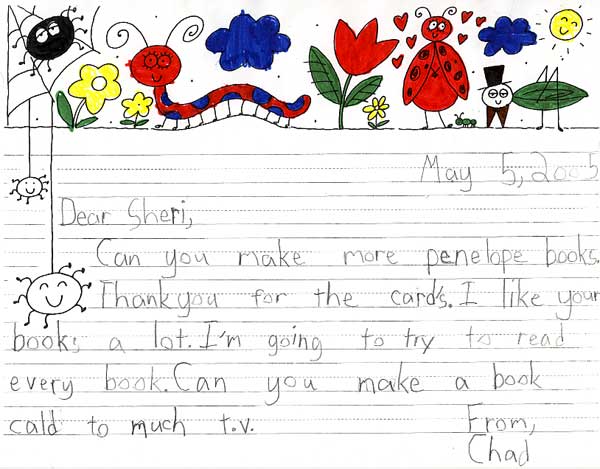 May 5, 2005
Dear Sheri,
Can you make more penelope books.
Thankyou for the card's. I like your
books a lot. I'm going to try to read
every book. Can you make a book
cald to much t.v.
From,
Chad